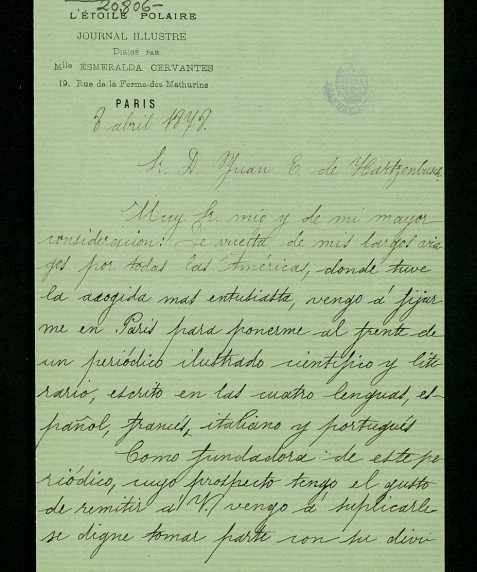 20806-
L'ÉTOILE POLAIRE
JOURNAL ILLUSTRÉ
DIRIGÉ PAR
Mlle ESMERALDA CERVANTES
19, Rue de la Ferme-des-Mathurins
PARIS
3 abril 1879.
Sr. D. Juan E. de Hartzenbusch.
Muy Sr. mio y de mi mayor
consideracion: De vuelta de mis largos via
ges por todas las Américas, donde tuve
la acogida mas entusiasta, vengo á fijar
me en París para ponerme al frente de
un periódico ilustrado cientifico y lite
rario, escrito en las cuatro lenguas, es-
pañol, francés, italiano y portugués
Como fundadora de este pe
riódico, cuyo prospecto tengo el gusto
de remitir á V. vengo á suplicarle
se digne tomar parte con su divi